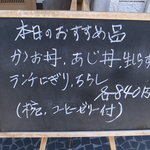 本日のおすすめ品
かお丼、あじ丼、生しらす
ランチにぎり、ちらし
各840
(椀、コーヒーゼリー付)